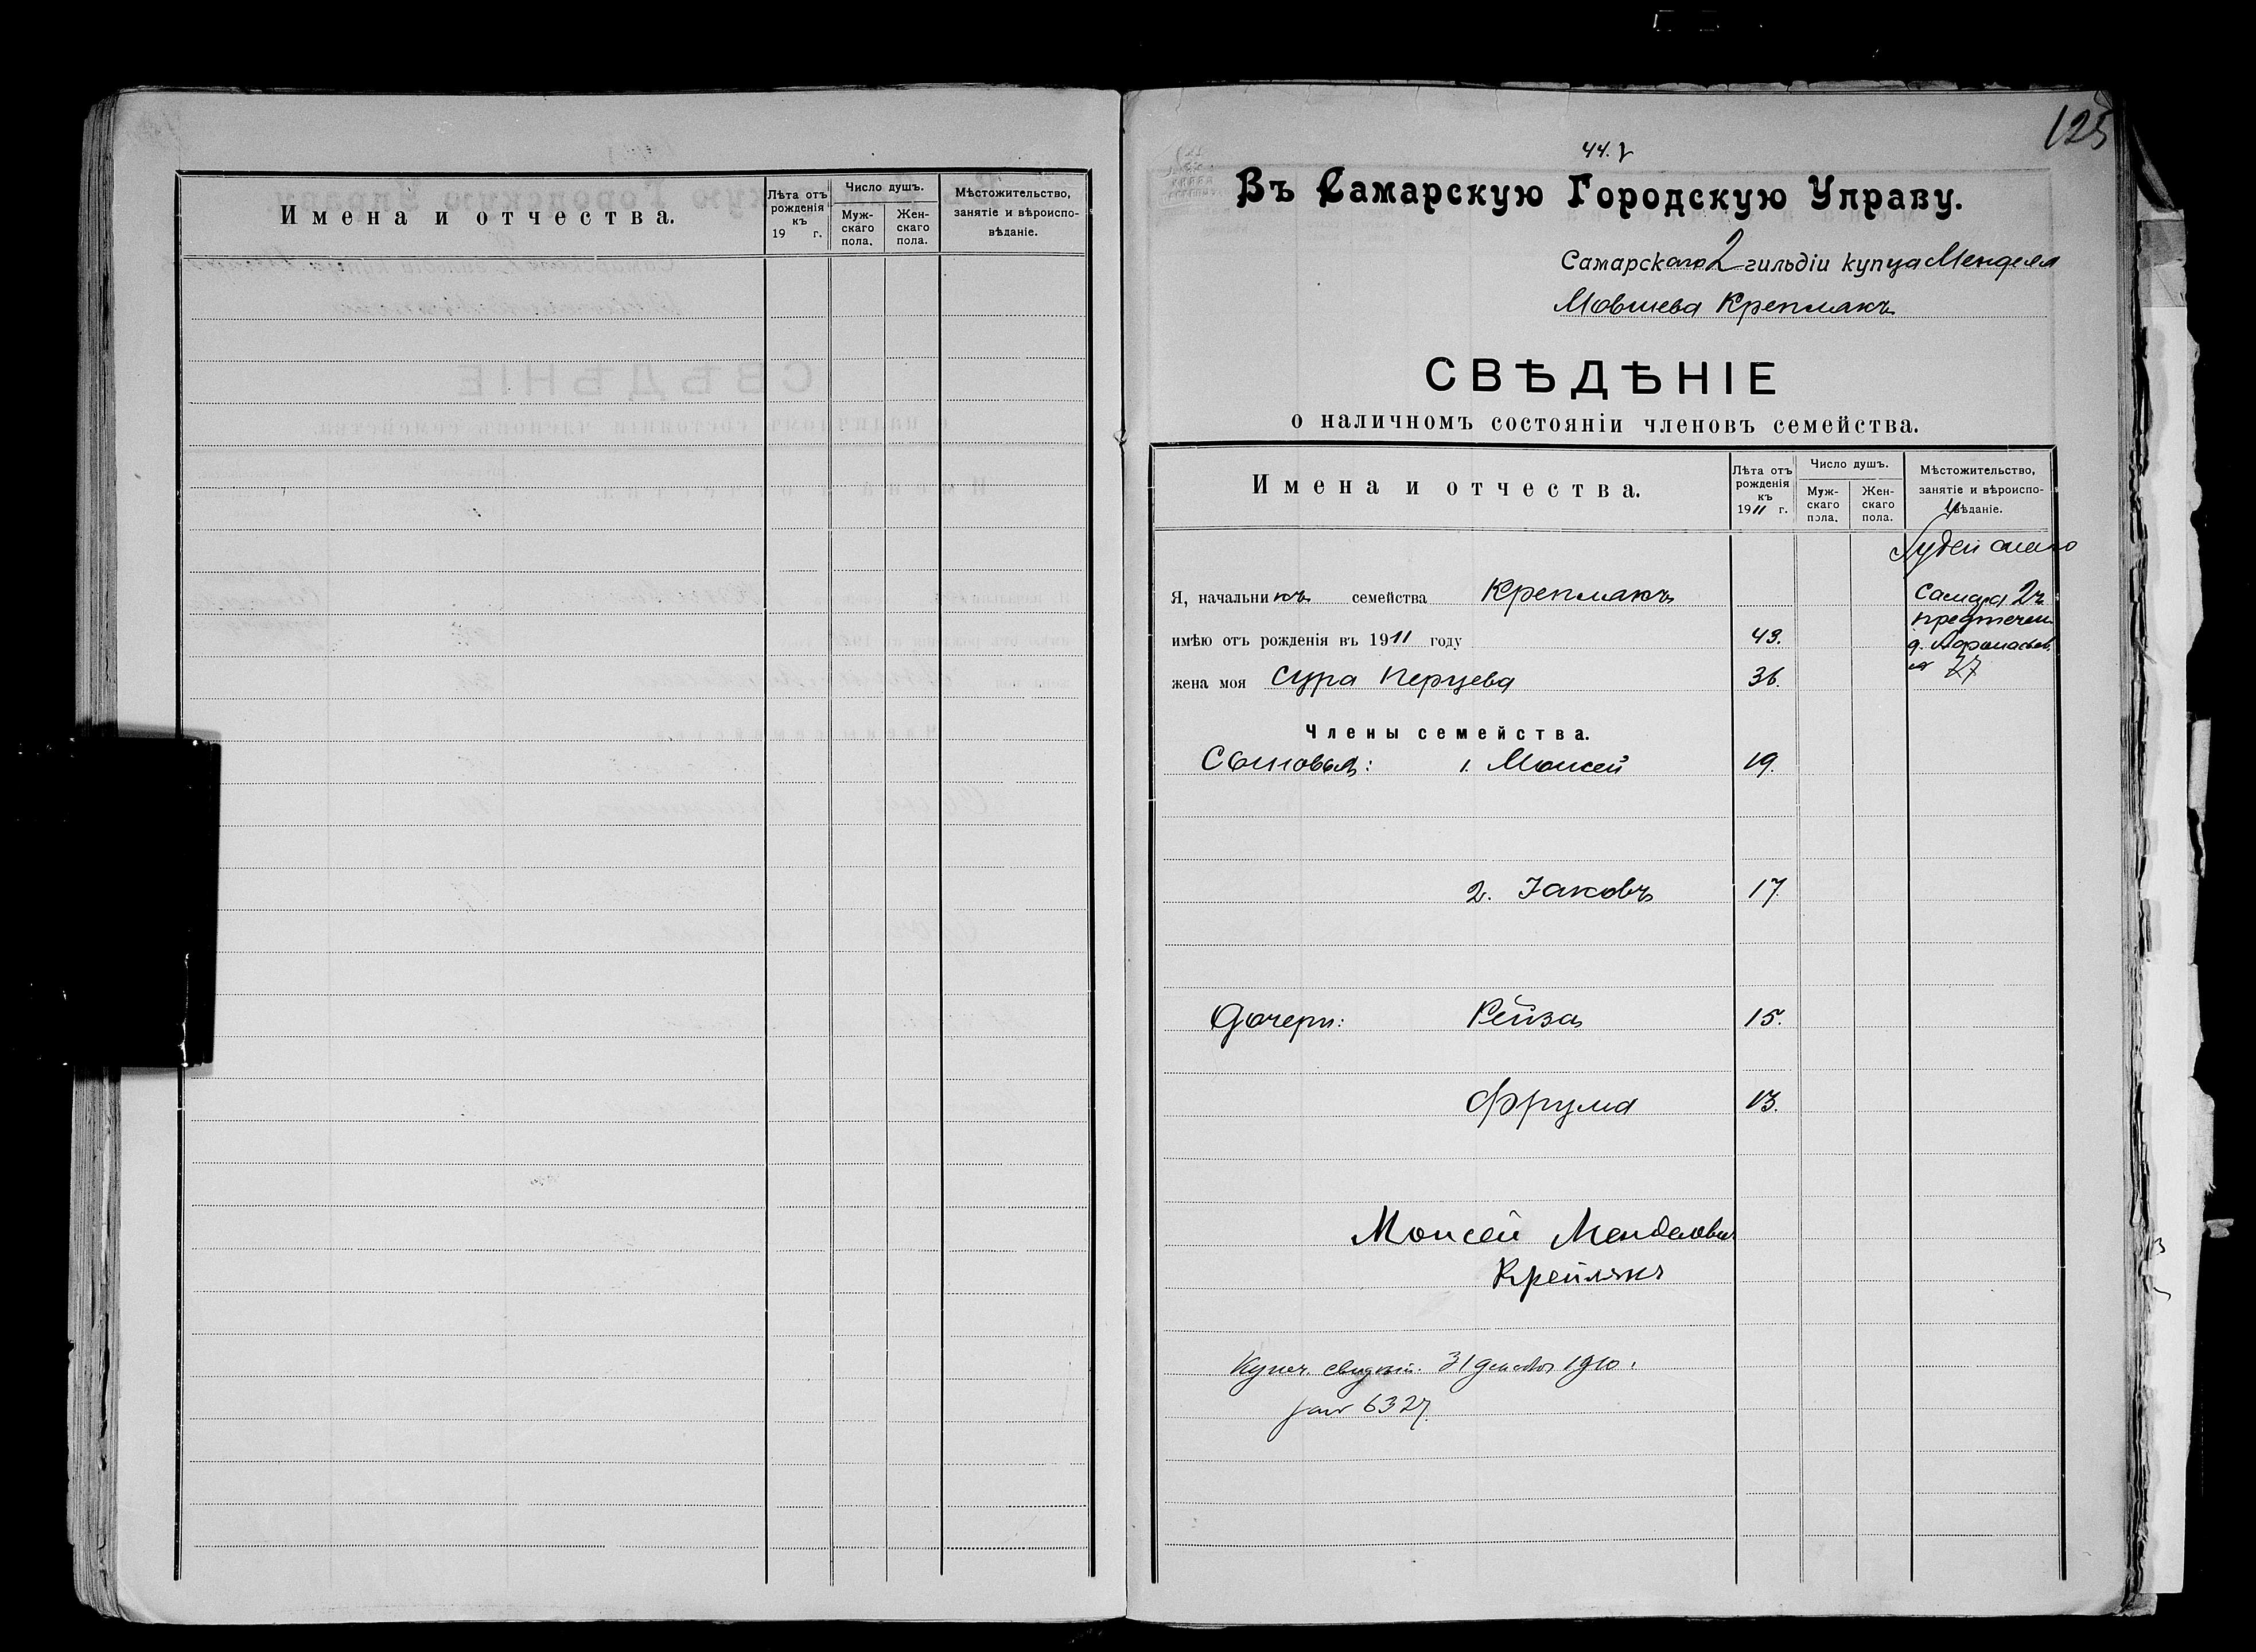 Имена и отчества.
Лѣта отъ рожденія къ 19 г.
Число душъ.
Мужскаго пола.
Женскаго пола.
Мѣстожительство, занятіе и вѣроисповѣданіе.
125
44.
Въ Самарскую Городскую Управу.
Самарскаго 2 гильдіи купца Менделя
Мовшева Крепляка
СВѢДѢНІЕ
о наличномъ состояніи членовъ семейства.
Имена и отчества.
Лѣта отъ рожденія къ 1911 г.
Число душъ.
Мужскаго пола.
Женскаго пола.
Мѣстожительство, занятіе и вѣроисповѣданіе.
Іудейскаго
Я, начальникъ семейства Креплякъ
Самара 2 ч.
имѣю отъ рожденія въ 1911 году 43.
жена моя Сура Перцева 36.
27
Члены семейства.
Сыновья: 1. Моисей 19.
2. Іаковъ 17
Дочери: Рейза 15.
Фрума 13.
Моисей Менделевич
Креплякъ
Купеч. свидѣт. 31 декабря 1910.
6327